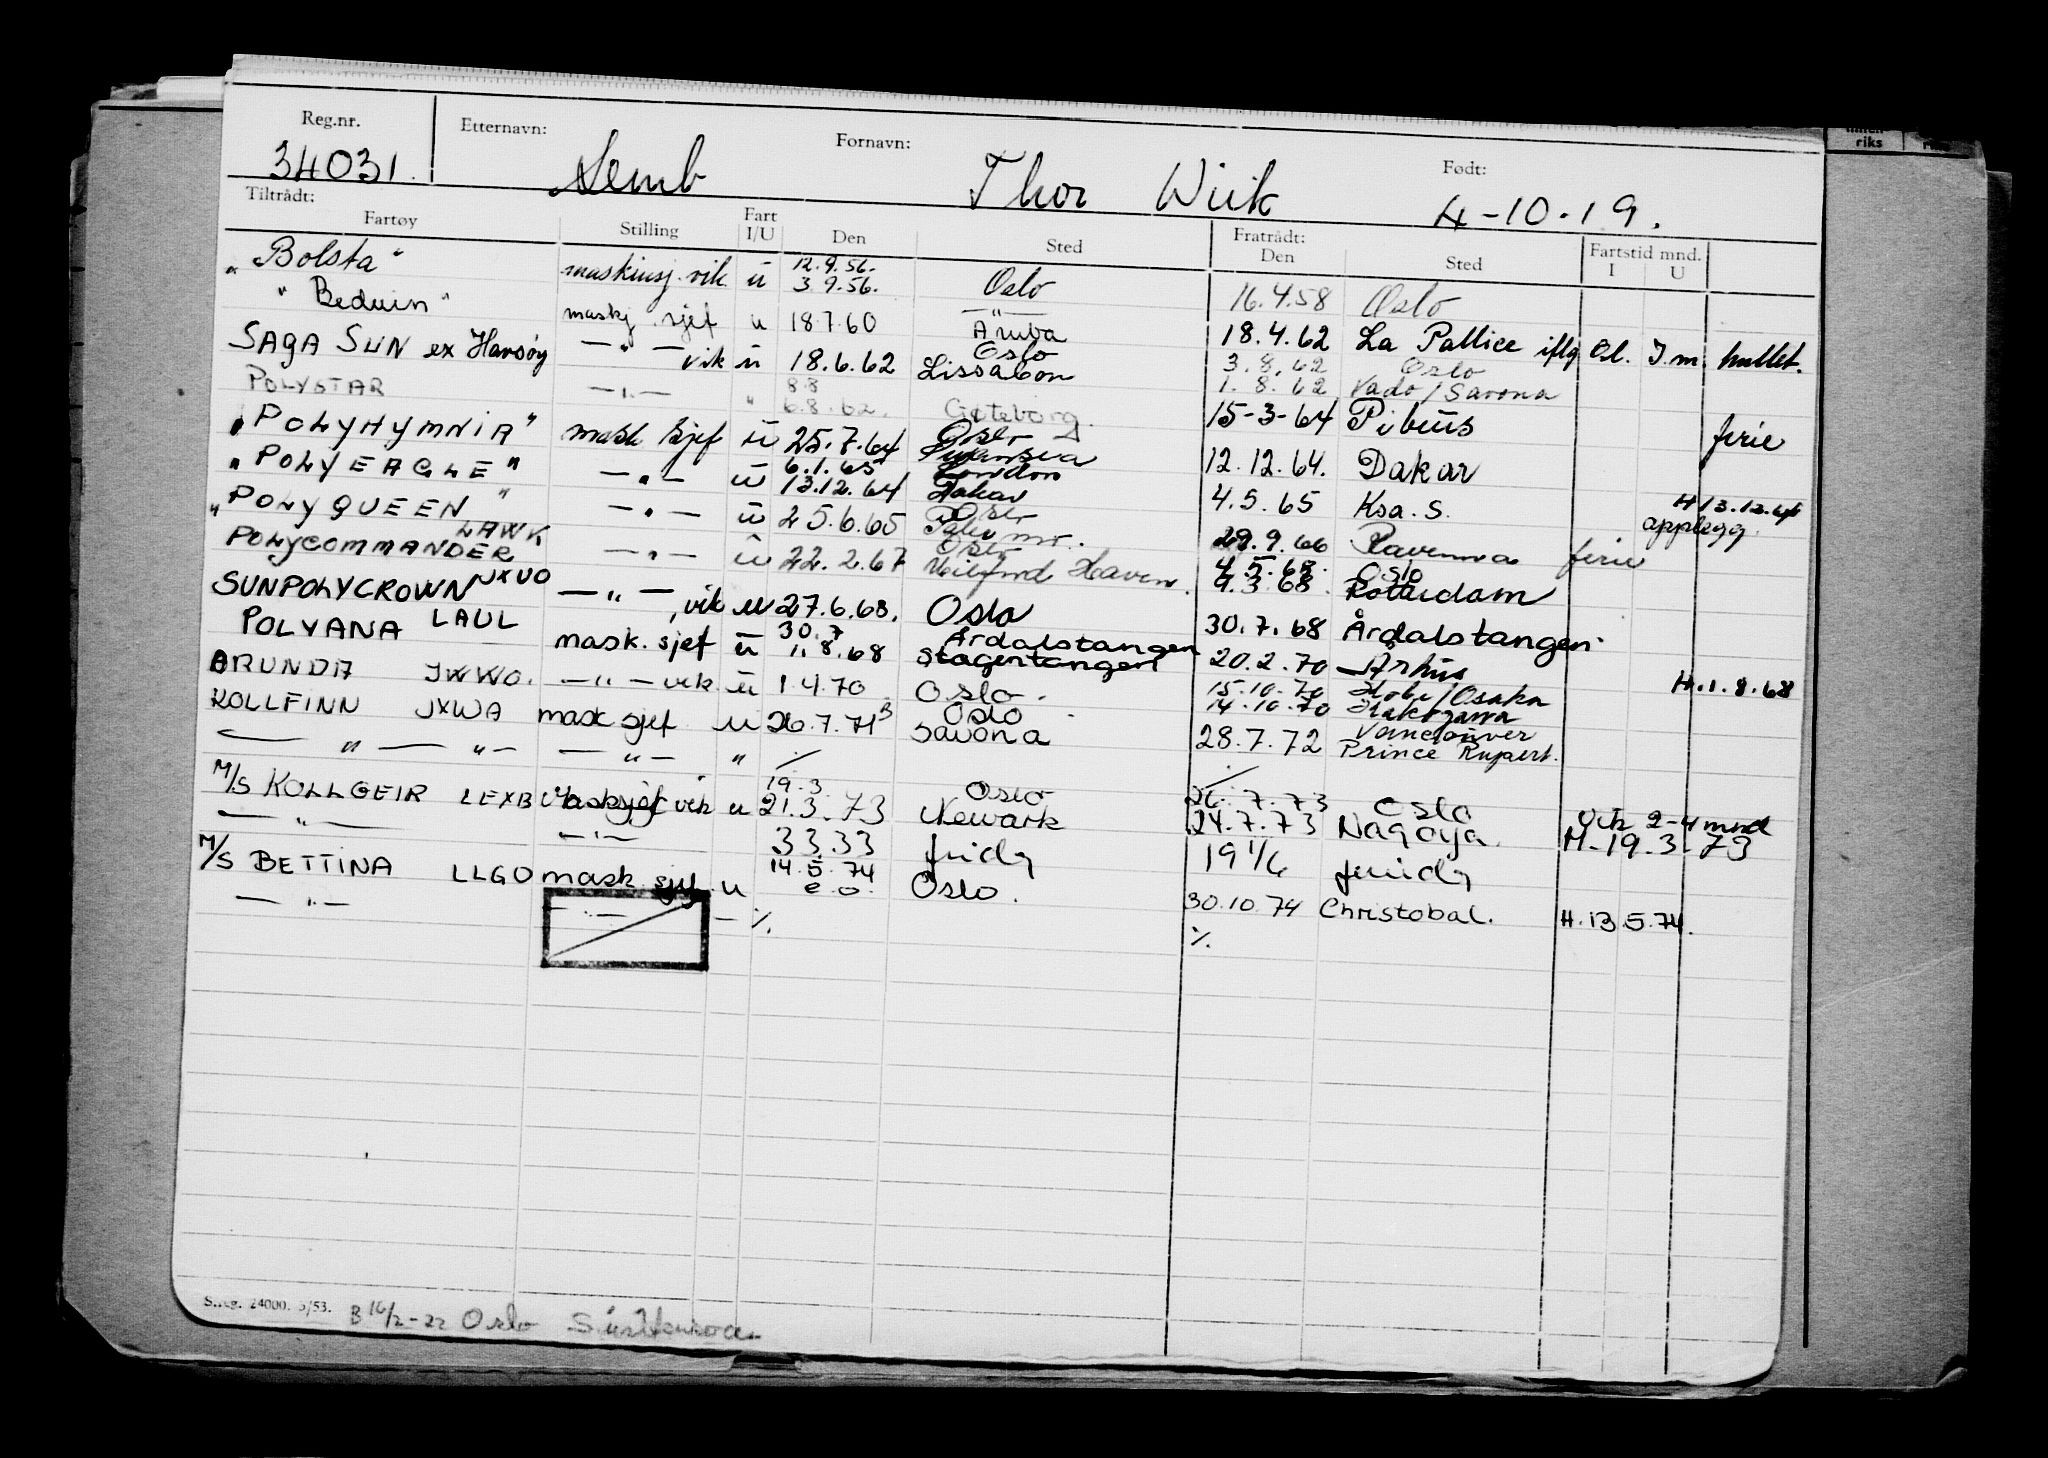 Reg.nr. Etternavn: Fornavn: Født:
34031. Semb Thor Wiik 4-10-19.
Tiltrådt: Fratrådt: Fartstid mnd.
Fartøy Stilling Fart I/U Den Sted Den Sted I U
12.9.56.
„ Bolsta " maskinsj. vik ū 3.9.56. Oslo 16.4.58 Oslo
" Beduin " maskj. sjef u 18.7.60 Aruba 18.4.62 La Pallice iflg Ol. I.m. hullet.
Oslo 3.8.62 Oslo
SAGA SUN ex Havsøy — " — vik ū 18.6.62 Lissabon 1.8.62 Vado/Savona
8.8
POLYSTAR — " — " 6.8.62. Gøteborg 15-3-64 Piræus ferie
Oslo
„ POLYHYMNIA " mask sjef ū 25.7.64 Swansea 12.12.64. Dakar
6.1.65 London
„ POLYEAGLE " — " — ū 13.12.64 Dakar 4.5.65 Ksa. S. H 13.12.64
Oslo opplegg.
„ POLYQUEEN " — " — ū 25.6.65 29.9.66 Ravenna ferie
LAWK Oslo 4.5.68. Oslo
POLYCOMMANDER — " — ū 22.2.67 Milford Haven. 9.3.68. Rotterdam
SUNPOLYCROWN JXUO — " — , vik u 27.6.68. Oslo 30.7.68 Årdalstangen.
30.7 Årdalstangen
POLYANA LAUL mask. sjef ū 1.8.68 Slagentangen 20.2.70 Århus H.1.8.68
15.10.70 Kobe/Osaka
ARUNDA JWWO. — " — vik ū 1.4.70 Oslo. 14.10.70 Kakogawa
Oslo Vancouver
KOLLFINN JXWA mask sjef u 26.7.71 B Savona 28.7.72 Prince Rupert.
— " — " — — " — " ⁒ ⁒
19.3. Oslo 26.7.73 Oslo
M/S KOLLGEIR LEXB Masksjef vik u 21.3.73 Newark 24.7.73 Nagoya. Vik 2-4 mnd
— " — — " — 33.33 19 1/6 H-19.3-73
14.5.74
M/S BETTINA LLGO mask. sjef u e.o. Oslo. 30.10.74 Christobal. H.13.5.74.
— " — — " — — ⁒ ⁒
S.reg. 24000. 5/53. B 16/2-22 Oslo
riks